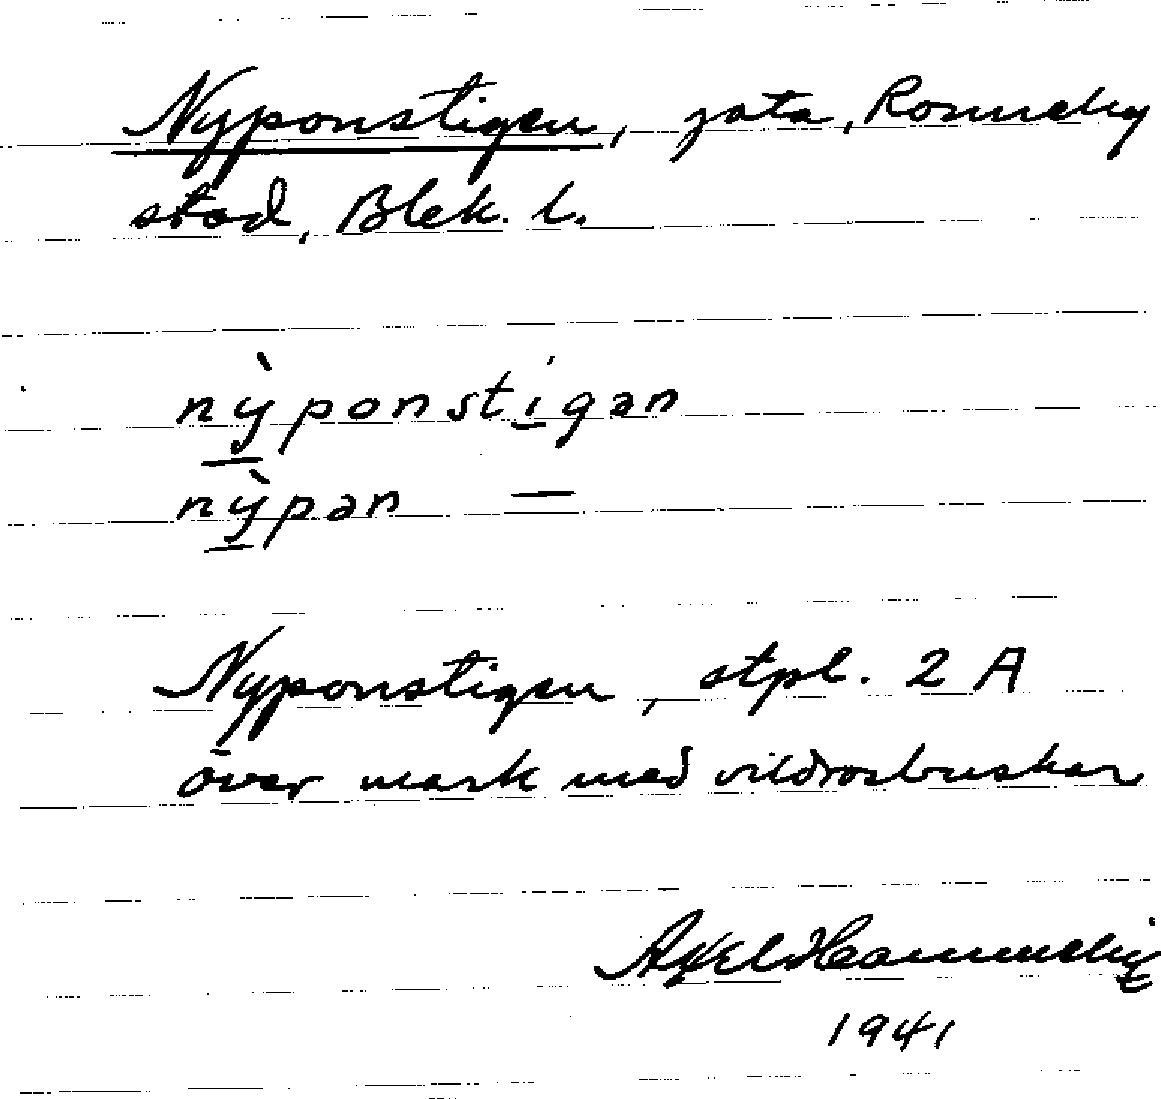 Nyponstigen, gata, Ronneby
stad, Blek. l.
nỳponstigan
nỳpan —
Nyponstigen, stpl. 2 A
över mark med vildrosbuskar
Axel
1941